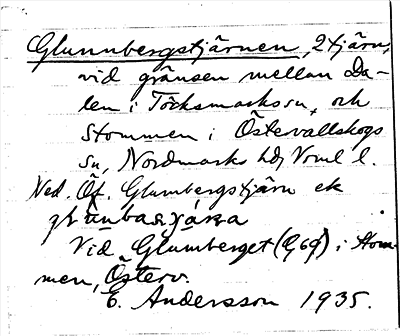 Glunnbergstjärnen, 2 tjärn,
vid gränsen mellan Da-
len i Töcksmarks sn, och
Stommen i Östervallskogs
sn, Nordmarks hd, Vrml l.
Ned. Öf. Glumbergstjärn ek
Vid Glumberget (G69) i Stom-
men, Österv.
E. Andersson 1935.